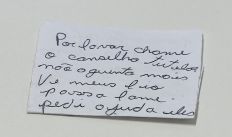 Por favor chame
o conselho tutelar
não aguento mais
Ve meus
passa fome.
pedi ajuda eles